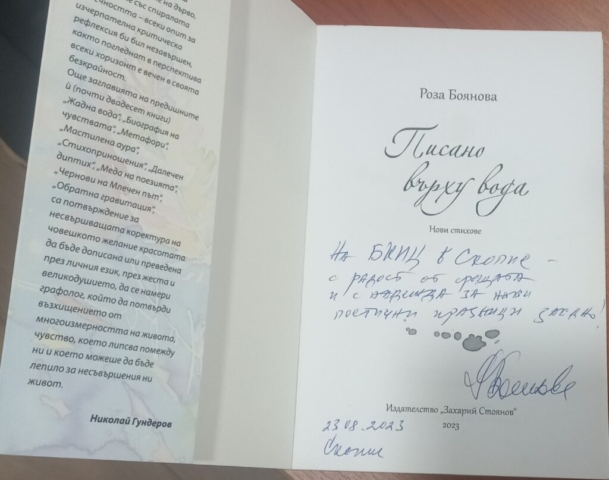 на дърво,
със спиралата
всеки опит за
изчерпателна критическа
рефлексия би бил незавършен,
както погледнат в перспектива
всеки хоризонт е вечен в своята
безкрайност.
Още заглавията на предишните
ѝ (почти двадесет книги)
„Жадна вода“, „Биография на
чувствата“, „Метафори“,
„Мастилена аура“,
„Стихоприношения“, „Далечен
диптих“, „Меда на поезията“,
„Чернови на Млечен път“,
„Обратна гравитация“,
са потвърждение за
несвършващата коректура на
човешкото желание красотата
да бъде дописана или преведена
през личния език, през жеста и
великодушието, да се намери
графолог, който да потвърди
възхищението от
многоизмерността на живота,
чувство, което липсва помежду
ни и което можеше да бъде
лепило за несвършения ни
живот.
Николай Гундеров
Роза Боянова
Писано
върху вода
Нови стихове
На БКИЦ в Скопие –
с радост от срещата
и с надежда за нови
поетични празници заедно!
Издателство „Захарий Стоянов“
2023
23.08.2023
Скопие